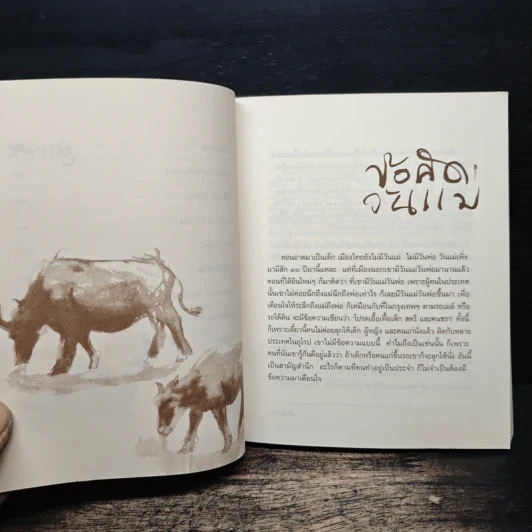 ข้อคิด
วันแม่
ตอนอาตมาเป็นเด็ก เมืองไทยยังไม่มีวันแม่ ไม่มีวันพ่อ วันแม่เพิ่ง
มามีสัก ๓๐ ปีมานี้แหละ แต่ที่เมืองนอกเขามีวันแม่วันพ่อมานานแล้ว
ตอนที่ได้ยินใหม่ๆ ก็มาคิดว่า ที่เขามีวันแม่วันพ่อ เพราะผู้คนในประเทศ
นั้นเขาไม่ค่อยนึกถึงแม่นึกถึงพ่อเท่าไร ก็เลยมีวันแม่วันพ่อขึ้นมา เพื่อ
เตือนใจให้ระลึกถึงแม่ถึงพ่อ ก็เหมือนกับที่ในกรุงเทพฯ ตามรถเมล์ หรือ
รถใต้ดิน จะมีข้อความเขียนว่า "โปรดเอื้อเฟื้อเด็ก สตรี และคนชรา" ทั้งนี้
ก็เพราะเดี๋ยวนี้คนไม่ค่อยลุกให้เด็ก ผู้หญิง และคนแก่นั่งแล้ว ผิดกับหลาย
ประเทศในยุโรป เขาไม่มีข้อความแบบนี้ ทำไมถึงเป็นเช่นนั้น ก็เพราะ
คนที่นั่นเขารู้กันดีอยู่แล้วว่า ถ้าเด็กหรือคนแก่ขึ้นรถเขาก็จะลุกให้นั่ง อันนี้
เป็นสามัญสำนึก อะไรก็ตามที่คนทำอยู่เป็นประจำ ก็ไม่จำเป็นต้องมี
ข้อความมาเตือนใจ